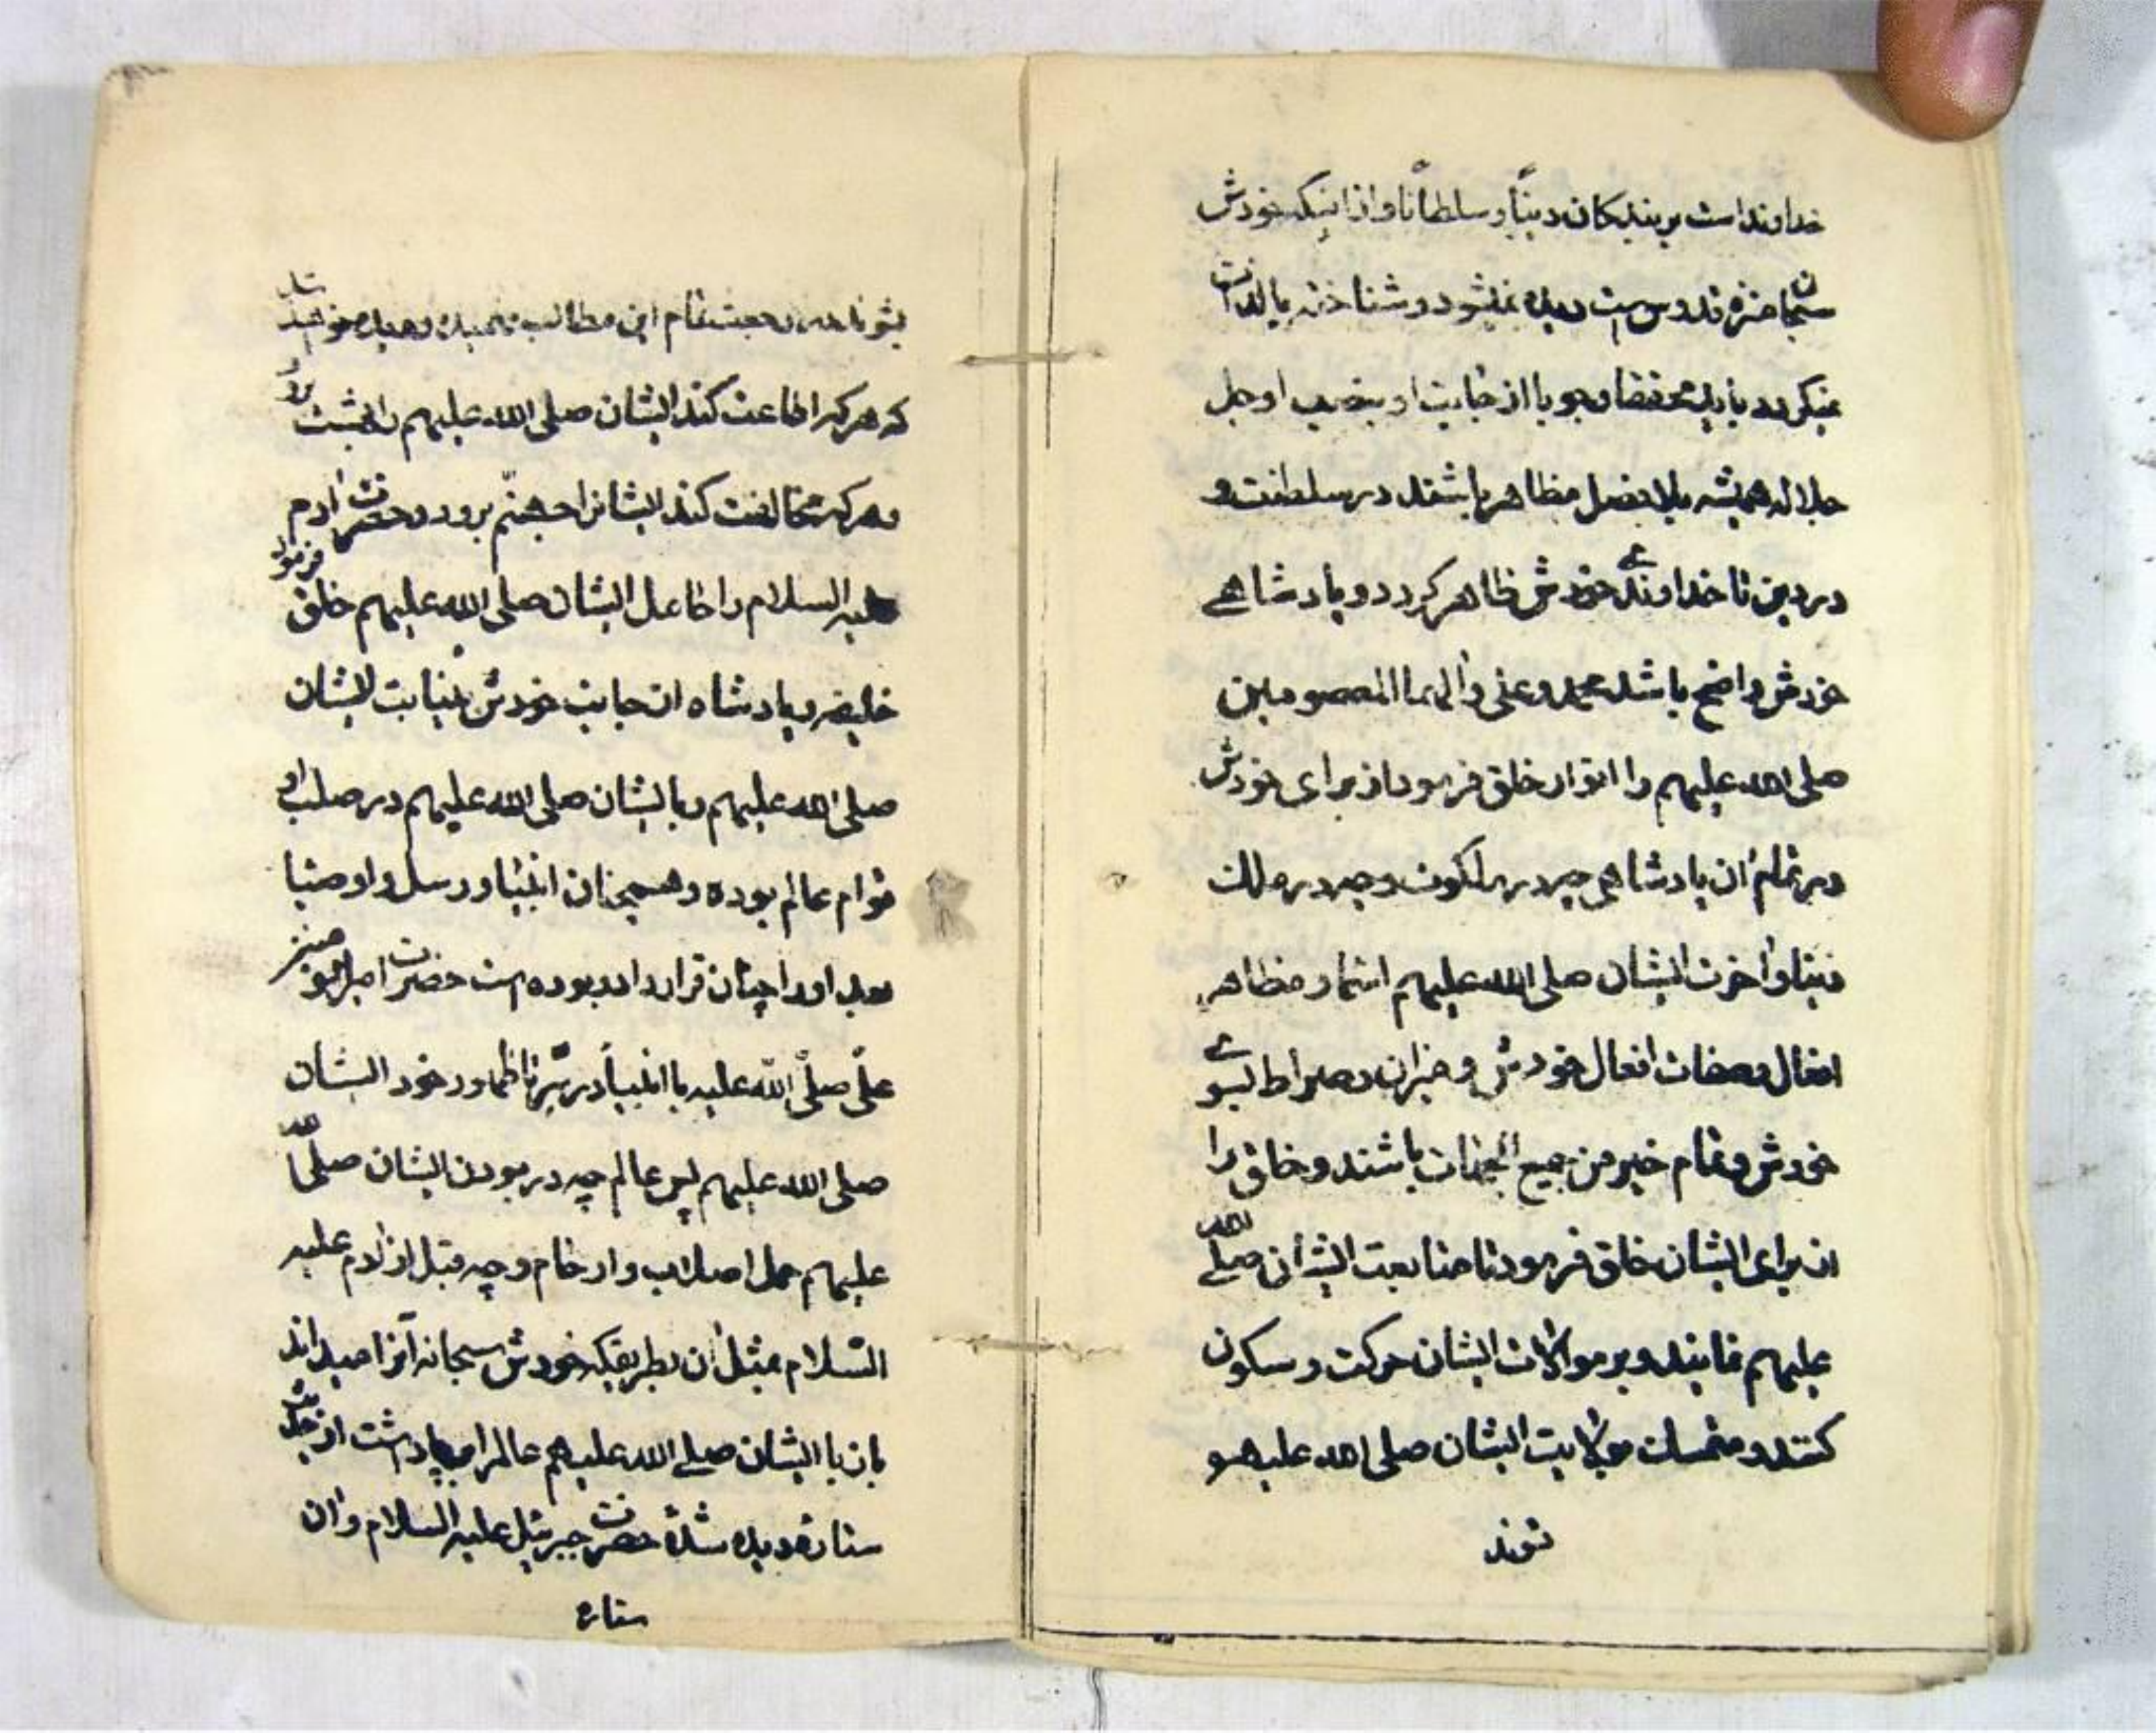 خداوند است بر بندکان دیناً و سلطاناً و از اینکه خودش
سبحان منزه قدوس است دیده نمیشود و شناخته بالذات
نمیکردد باید محققا وجوبا از جانب او بنصب او جل
جلاله همیشه بلا فصل مظاهر باشند در سلطنت و
در دین تا خداوندے خودش ظاهر کردد و پادشاهے
خودش واضح باشد محمد و علی و آلهما المعصومین
صلی الله علیهم را انوار خلق فرمود از برای خودش
در تمام آن پادشاهی چه در ملکوت و چه در ملک
دنیا و آخرت ایشان صلی الله علیهم اسماء و مظاهر
افعال و صفات افعال خودش و خیران و صراط بسوے
خودش و تمام خیر من جمیع الجهات باشند و خلق را
از برای ایشان خلق فرمود تا متابعت ایشان صلے الله
علیهم نمایند و بر موالات ایشان حرکت و سکون
کنند و متمسک بولایت ایشان صلی الله علیهم
شوند
تمام این مطالب فهمیده
که هر که اطاعت کند ایشان صلی الله علیهم را بهشت رود
و هر که مخالفت کند ایشانرا جهنّم برود و حضرت آدم
علیه السلام را ایشان صلی الله علیهم خلق فرمود
خلیفه و پادشاه از جانب خودش بنیابت ایشان
صلی الله علیهم و با ایشان صلی الله علیهم در صلب او
قوام عالم بوده و همچنان انبیا و رسل و اوصیا
بعد او را چنان قرار داده بوده است حضرت امیر المومنین
علیّ صلّی الله علیه با انبیا در سرّ تا ظهور خود ایشان
صلی الله علیهم پس عالم چه در بودن ایشان صلّی الله
علیهم اصلاب و ارحام و چه قبل از آدم علیه
السّلام بمثل آن بطریقیکه خودش سبحانه آنرا میداند
بان با ایشان صلے الله علیهم عالم را بپا داشت
ستاره دیده شدهٔ حضرت جبرئیل علیه السلام و آن
ستاره